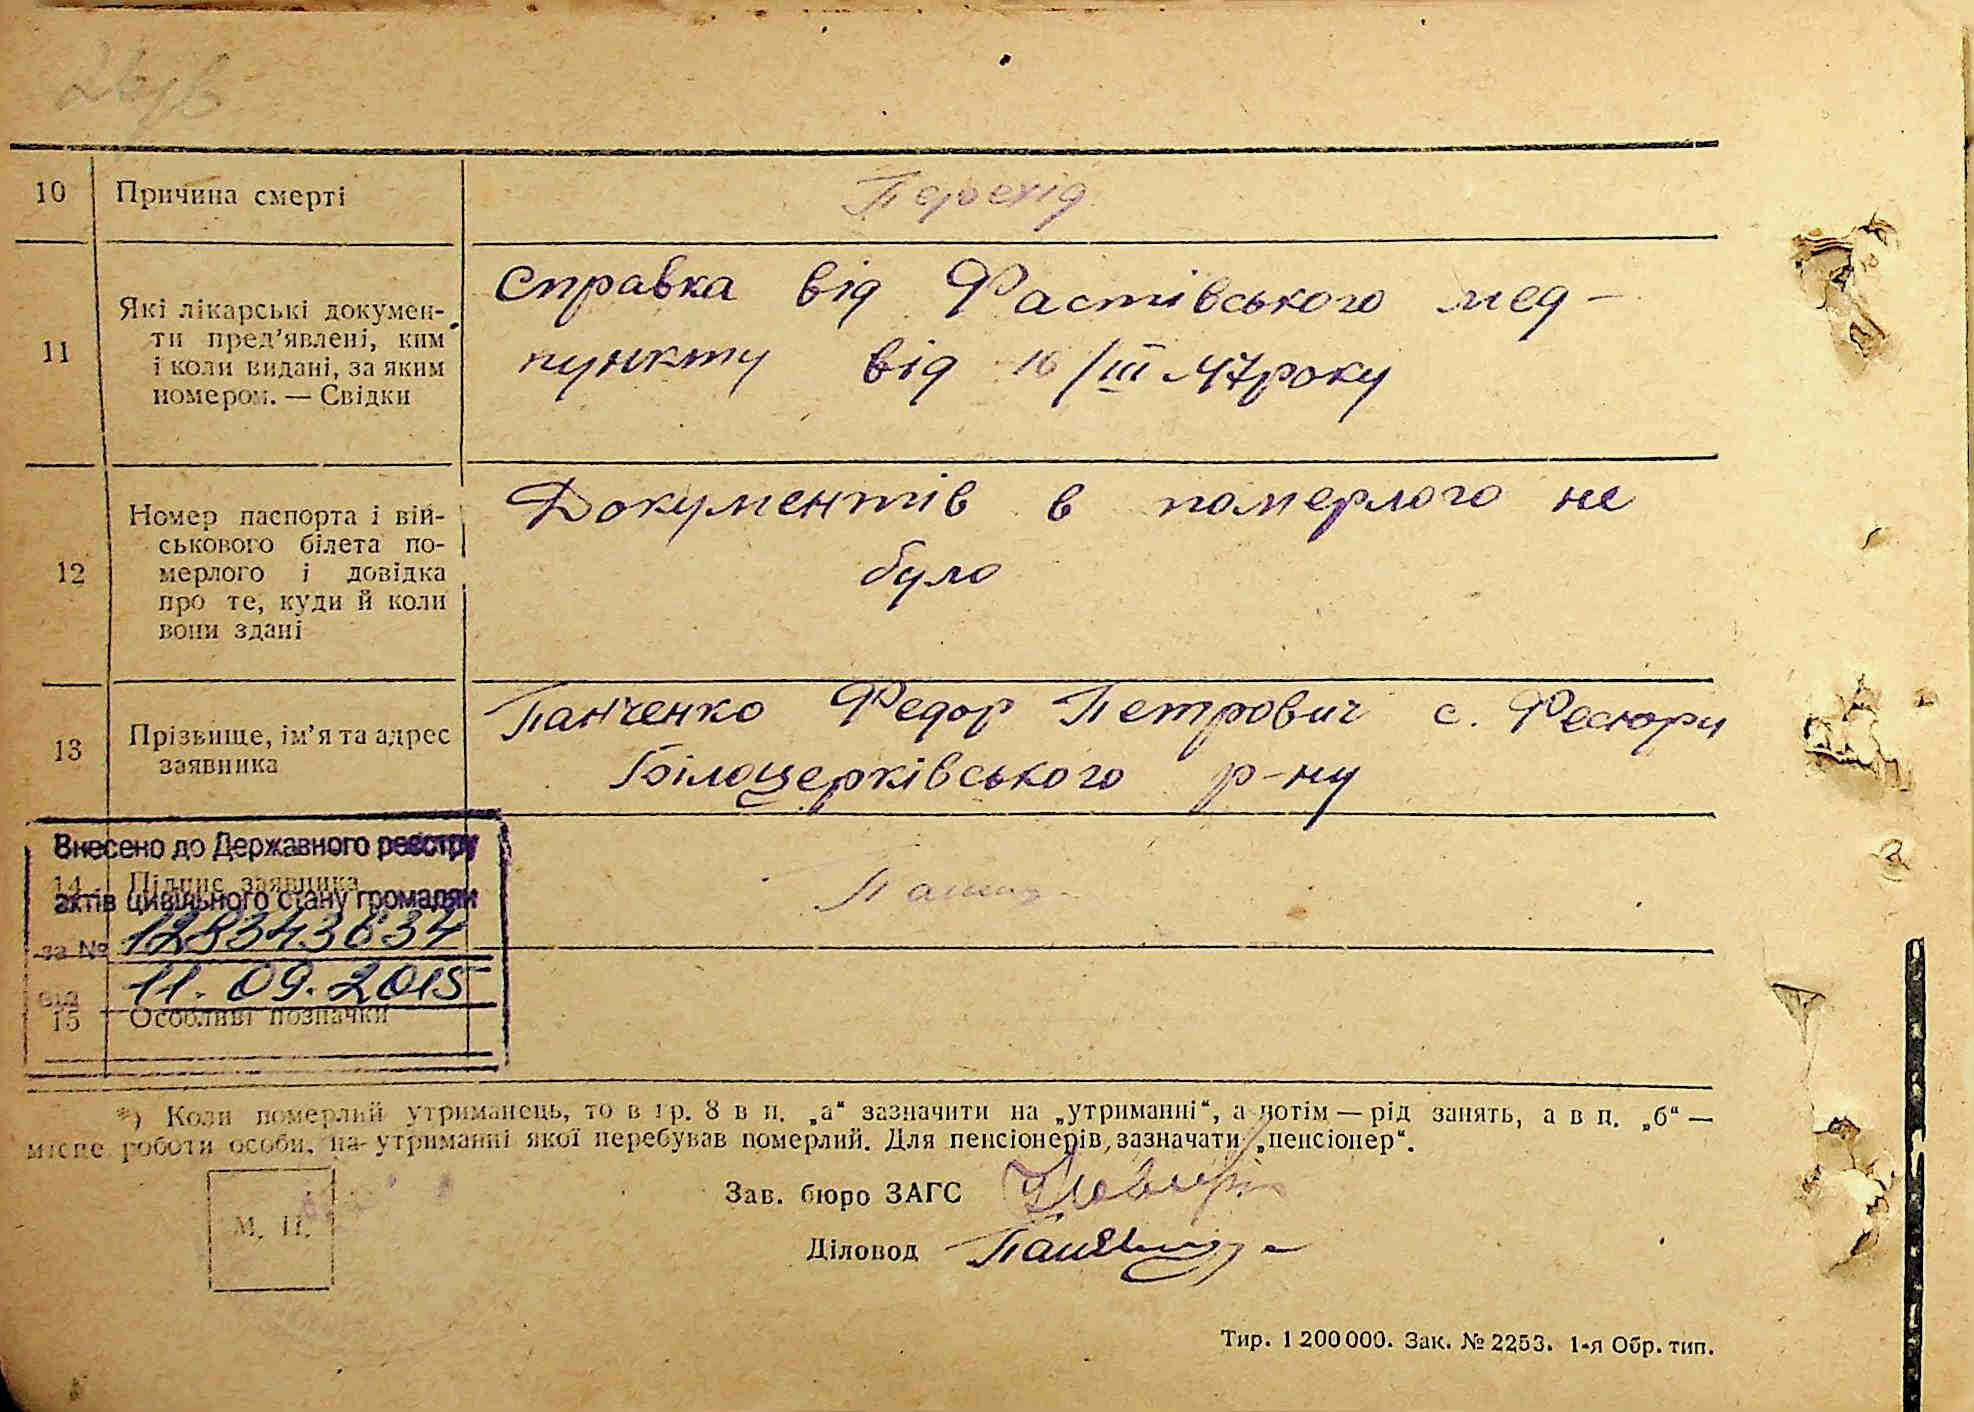 10 Причина смерті Перехід
11 Які лікарські докумен-
ти пред’явлені, ким
і коли видані, за яким
номером. — Свідки
Справка від Фастівського мед-
пункту від 16/III 47 року
12 Номер паспорта і вій-
ськового білета по-
мерлого і довідка
про те, куди й коли
вони здані
Документів в померлого не
було
13 Прізвище, ім’я та адрес
заявника
Панченко Федор Петрович с. Фесюри
Білоцерківського р-ну
Внесено до Державного реєстру
14 Підпис заявника
актів цивільного стану громадян
за № 128343634
від 11.09.2015
15 Особливі позначки
*) Коли померлий утриманець, то в гр. 8 в п. „а“ зазначити на „утриманні“, а потім — рід занять, а в п. „б“ —
місце роботи особи, на утриманні якої перебував померлий. Для пенсіонерів, зазначати „пенсіонер“.
М. П.
Зав. бюро ЗАГС
Діловод
Тир. 1 200 000. Зак. № 2253. 1-я Обр. тип.